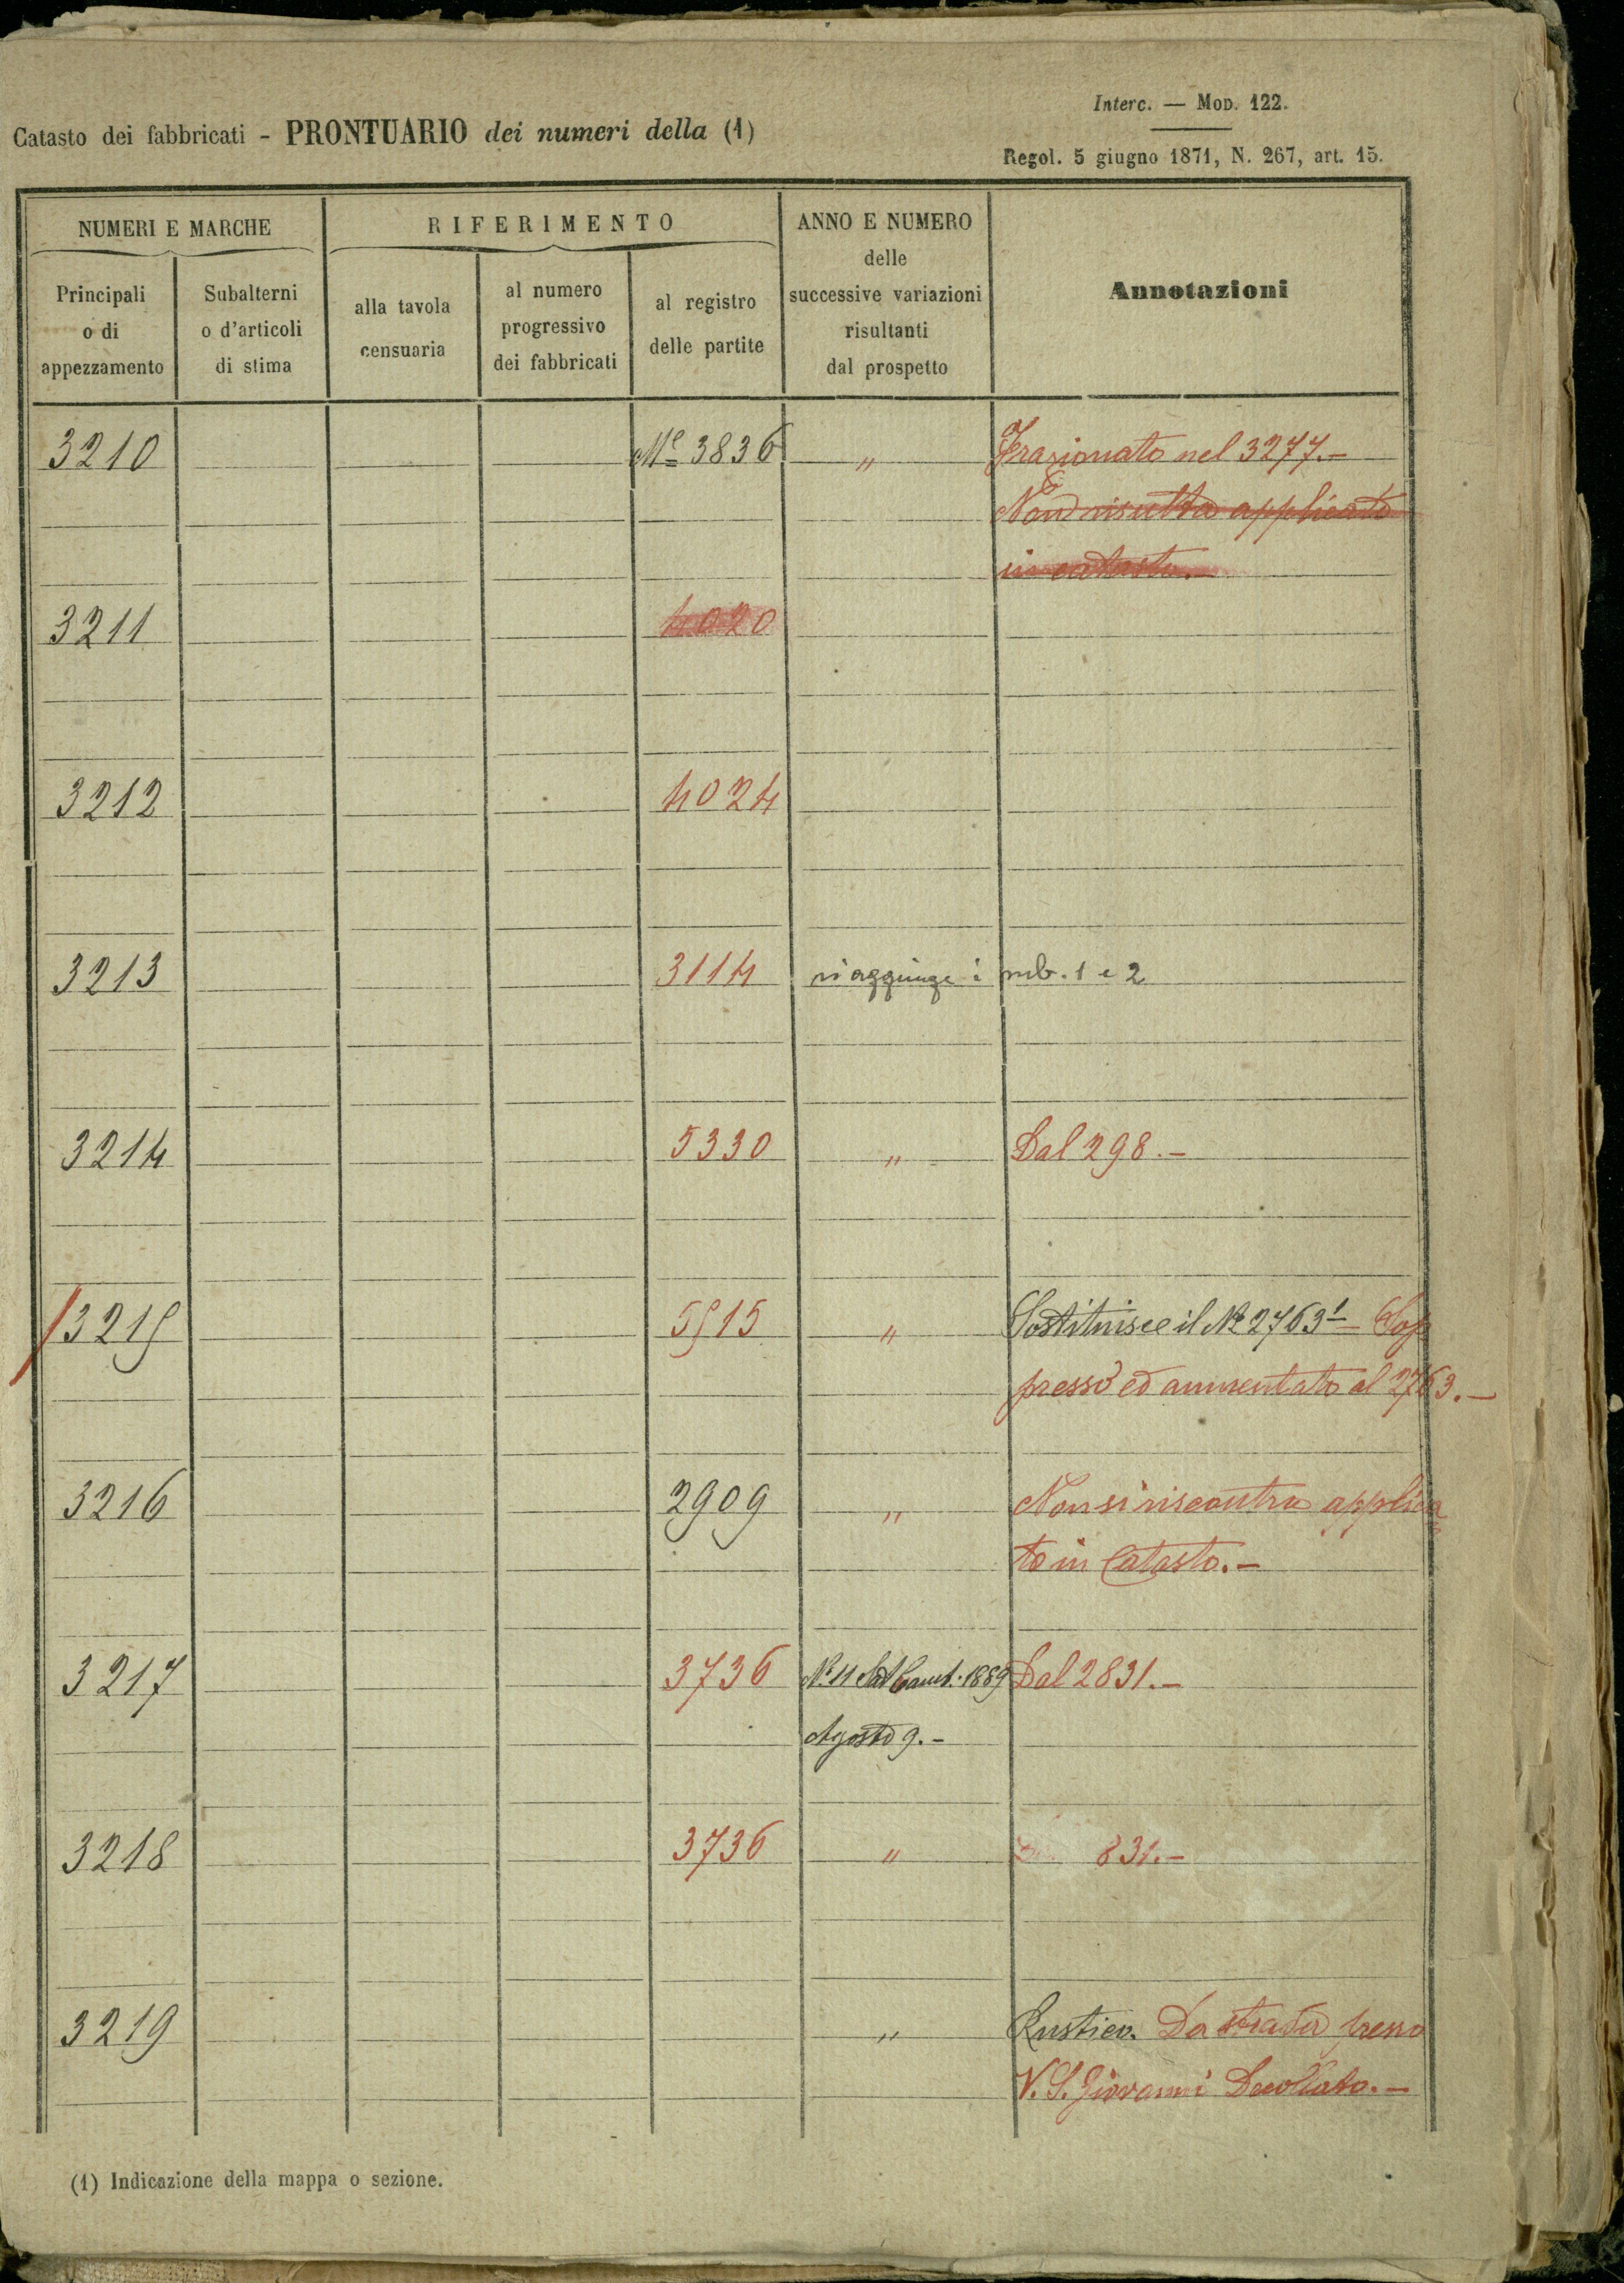 Interc. — MOD. 122.
Catasto dei fabbricati - PRONTUARIO dei numeri della (1)
Regol. 5 giugno 1871, N. 267, art. 15.
NUMERI E MARCHE RIFERIMENTO ANNO E NUMERO delle successive variazioni risultanti dal prospetto Annotazioni
Principali o di appezzamento Subalterni o d'articoli di stima alla tavola censuaria al numero progressivo dei fabbricati al registro delle partite
3210 Mº 3836 " Frazionato nel 3277.-
Non risulta applicato
in catasto.-
3211 4020
3212 4024
3213 3114 si aggiunge i sub. 1 e 2
3214 5330 " Dal 298.-
3215 5515 " Sostituisce il Nº 2763¹ - Sop
presso ed aumentato al 2763.-
3216 2909 " Non si riscontra applica
to in Catasto.-
3217 3736 Nº 11 1889 Dal 2831.-
Agosto 9.-
3218 3736 " 831.-
3219 " Rustico. Da strada presso
V. S. Giovanni Decollato.-
(1) Indicazione della mappa o sezione.